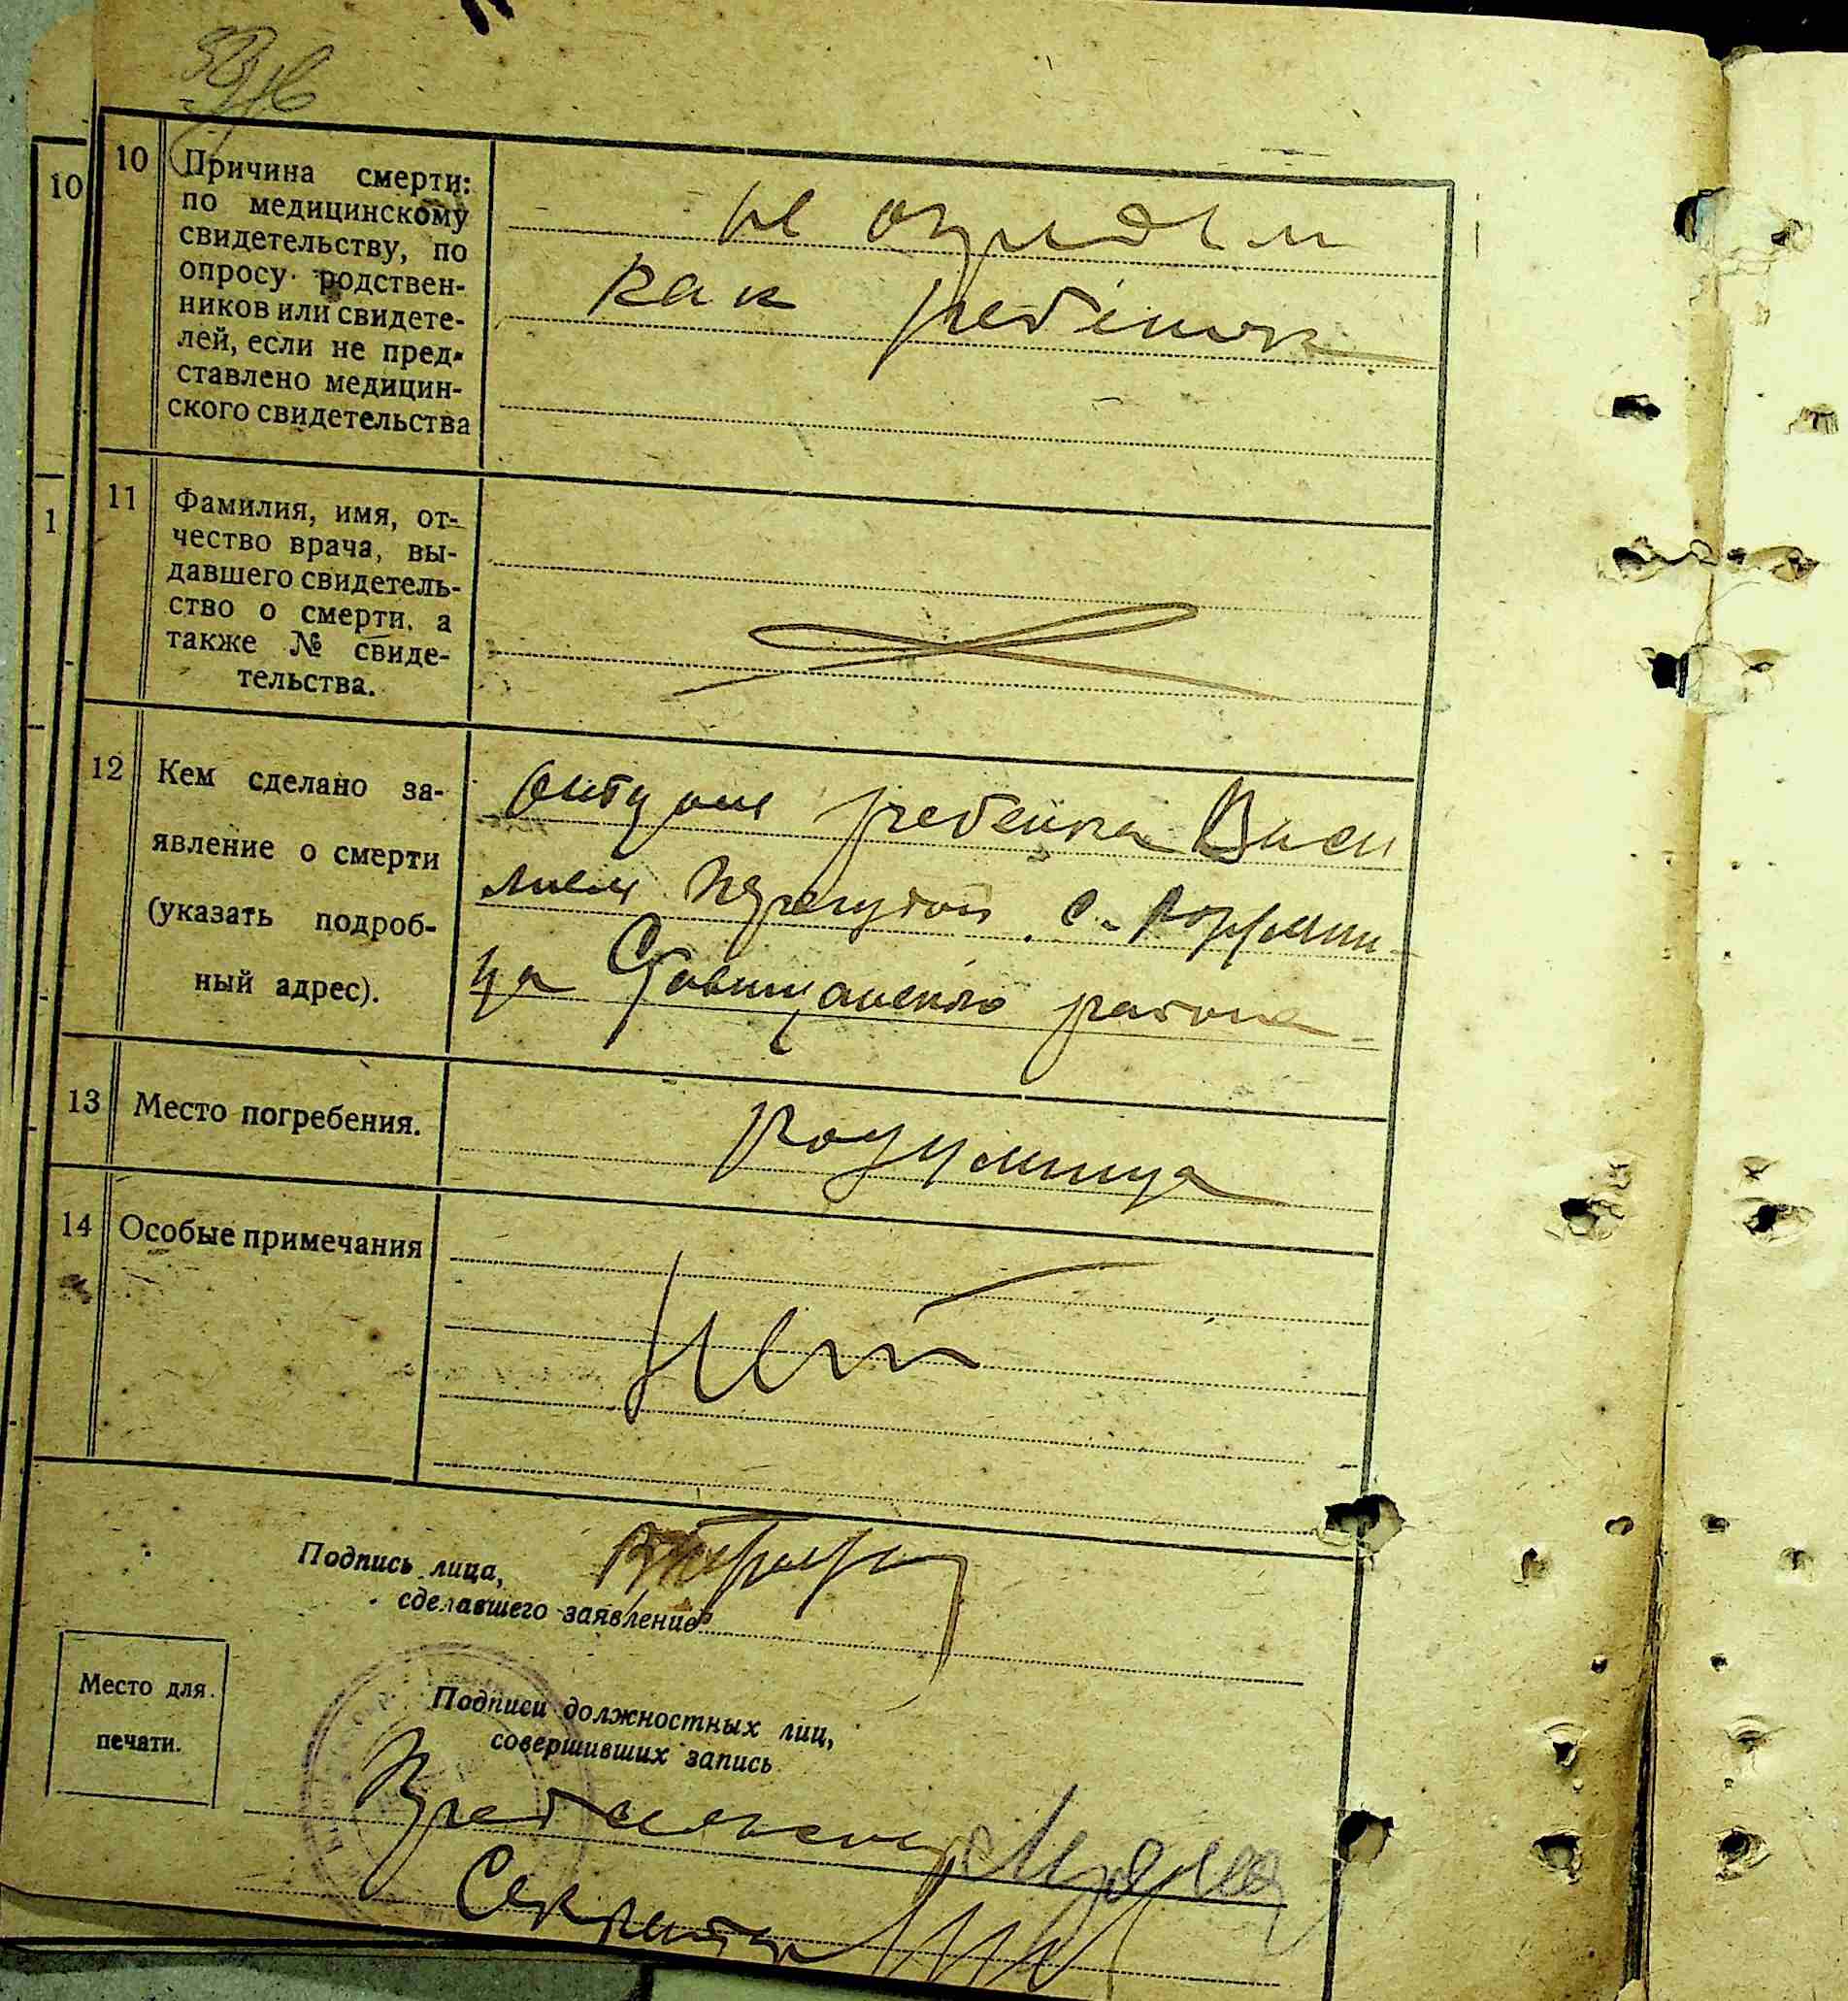 10
1
10
Причина смерти:
по медицинскому
свидетельству, по
опросу родствен-
ников или свидете-
лей, если не пред-
ставлено медицин-
ского свидетельства
не
как ребенок
11
Фамилия, имя, от-
чество врача, вы-
давшего свидетель-
ство о смерти, а
также № свиде-
тельства.
12
Кем сделано за-
явление о смерти
(указать подроб-
ный адрес).
ребенка Васи
лием с.
ца Ставищанского района
13
Место погребения.
14
Особые примечания
Нет
Подпись лица,
сделавшего заявление
Место для
печати.
Подписи должностных лиц,
совершивших запись
Пред сельсовета
Секретарь